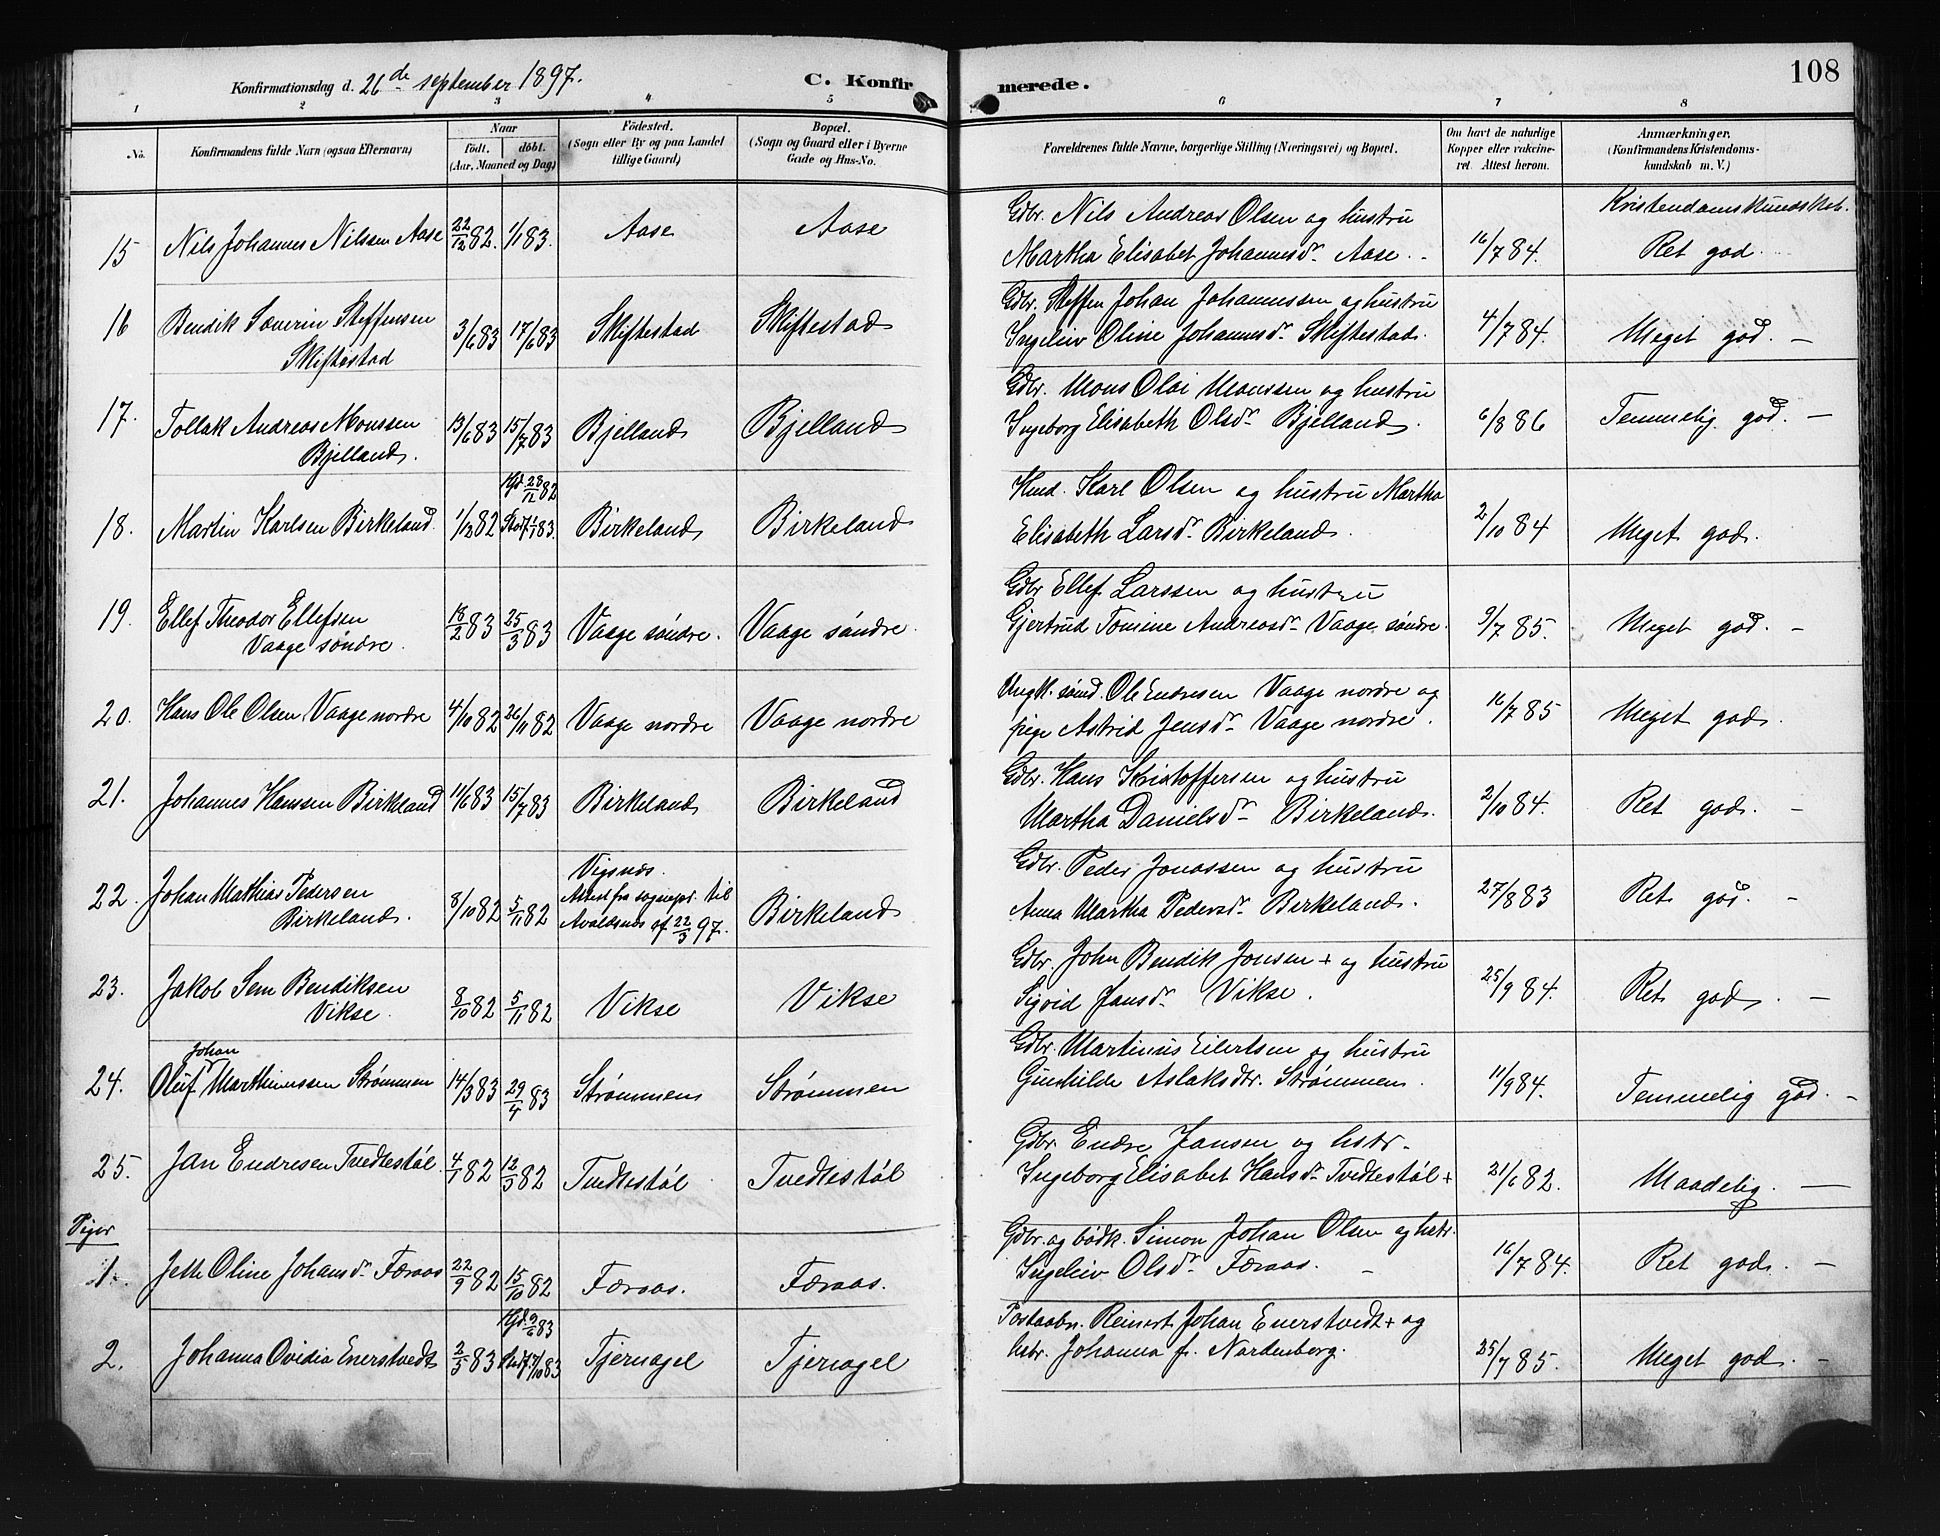 108
Konfirmationsdag d. 26de september 1897. C. Konfirmerede.
1 2 3 4 5 6 7 8
No. Konfirmandens fulde Navn (ogsaa Efternavn) Naar födt. döbt. (Aar, Maaned og Dag) Födested. (Sogn eller By og paa Landet tillige Gaard) Bopæl. (Sogn og Gaard eller i Byerne Gade og Hus-No. Forældrenes fulde Navne, borgerlige Stilling (Næringsvei) og Bopæl. Om havt de naturlige Kopper eller vakcineret. Attest herom. Anmærkninger. (Konfirmandens Kristendomskundskab m. V.)
Kristendomskundskab.
15 Nils Johannes Nilsen Aase 22/12 82. 1/1 83. Aase Aase Gdbr. Nils Andreas Olsen og hustru
Martha Elisabet Johannesdr Aase. 16/7 84. Ret god
16 Bendik Severin Steffensen
Skiftestad 3/6 83 17/6 83 Skiftestad Skiftestad Gdbr. Steffen Johan Johannessen og hustru
Ingeliv Oline Johannesdr Skiftestad. 4/7 84. Meget god. –
17. Tollak Andreas Monssen
Bjelland. 13/6 83 15/7 83 Bjelland Bjelland Gdbr. Mons Olai Monssen og hustru
Ingeborg Elisabeth Olsdr Bjelland. 6/8 86 Temmelig god. –
18. Martin Karlsen Birkeland 1/12 82 Hjd. 28/12 82
Stadf. 1/1 83. Birkeland Birkeland Hmd. Karl Olsen og hustru Martha
Elisabeth Larsdr Birkeland. 2/10 84 Meget god.
19. Ellef Theodor Ellefsen
Vaage söndre. 18/2 83 25/3 83 Vaage söndre. Vaage söndre. Gdbr Ellef Larssen og hustru
Gjertrud Tomine Andreasdr Vaage søndre. 9/7 85. Meget god. –
20. Hans Ole Olsen Vaage nordre 4/10 82 26/11 82 Vaage nordre Vaage nordre Ungk. sömd. Ole Endresen Vaage nordre og
pige Astrid Jensdr Vaage nordre. 16/7 85 Meget god.
21. Johannes Hanssen Birkeland 11/6 83 15/7 83 Birkeland Birkeland Gdbr. Hans Kristoffersen og hustru
Martha Danielsdr Birkeland. 2/10 84. Ret god. –
22. Johan Mathias Pedersen
Birkeland. 8/10 82 5/11 82 Vigsnæs.
Attest fra sognepr. til
Avaldsnes af 22/3 97. Birkeland Gdbr. Peder Jonassen og hustru
Anna Martha Pedersdr Birkeland. 27/8 83 Ret god. –
23. Jakob Sem Bendiksen
Vikse. 8/10 82 5/11 82 Vikse Vikse Gdbr. John Bendik Jonsen + og hustru
Sigvid Jansdr Vikse. 25/9 84. Ret god. –
24. Oluf Johan Marthinussen Strømmen 14/3 83 29/4 83 Strømmen Strømmen Gdbr. Martinus Eilertsen og hustru
Gunhilde Aslaksdtr. Strømmen. 11/9 84. Temmelig god. –
25. Jan Endresen Tvedtestöl 4/1 82 12/3 82 Tvedtestöl Tvedtestöl Gdbr. Endre Jansen og hstr.
Ingeborg Elisabet Hansdr Tvedtestöl + 21/6 82. Maadelig. –
Piger
1. Jette Oline Johansdr Færaas 22/9 82 15/10 82 Færaas. Færaas. Gdbr. og bødk. Simon Johan Olsen og hstr.
Ingeliv Olsdr Færaas. – 16/7 84. Ret god. –
2. Johanna Ovidia Enerstvedt 2/5 83 Hjd. 9/6 83
Stadf. 7/10 83 Tjernagel Tjernagel Postaabn. Reinert Johan Enerstvedt + og
hstr. Johanna f. Nordenborg. 25/7 85. Meget god. –